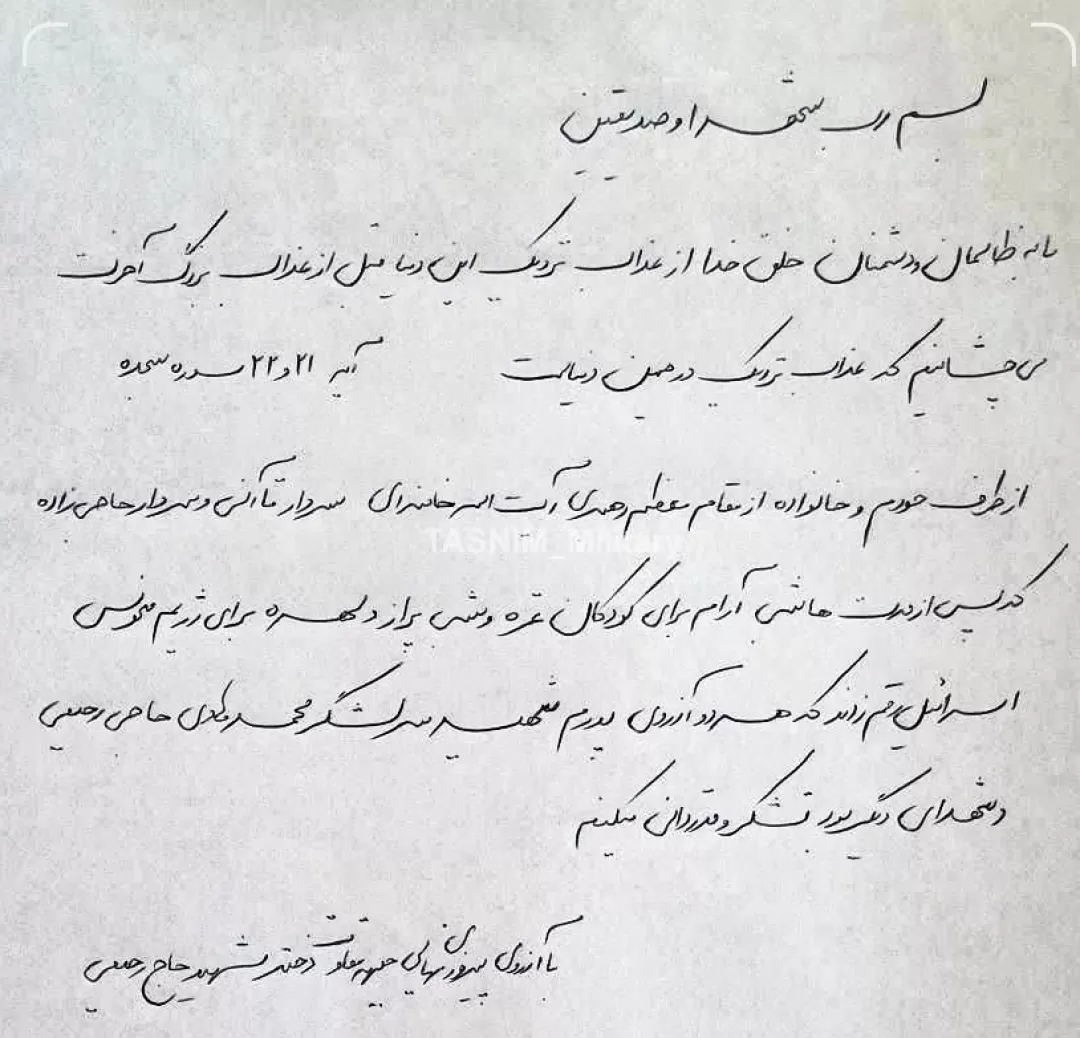 بسم رب الشهدا و صدیقین
ما به ظالمان و دشمنان خلق خدا از عذاب نزدیک این دنیا قبل از عذاب بزرگ آخرت
می چشانیم که عذاب نزدیک در همین دنیاست آیه ۲۱ و ۲۲ سوره سجده
از طرف خودم و خانواده از مقام عظم رهبری آیت الله خامنه‌ای سردار قاآنی و سردار حاجی زاده
که پس از مدت ها شبی آرام برای کودکان غزه و شبی پر از دلهره برای رژیم منحوس
اسرائیل رقم زدند که هر دو آرزوی پدرم شهید سرلشگر محمد هادی حاجی رحیمی
و شهدای دیگر بود تشکر و قدردانی میکنیم
با آرزوی پیروزی نهائی جبهه مقاومت دختر شهید حاج رحیمی
TASNIM_Military